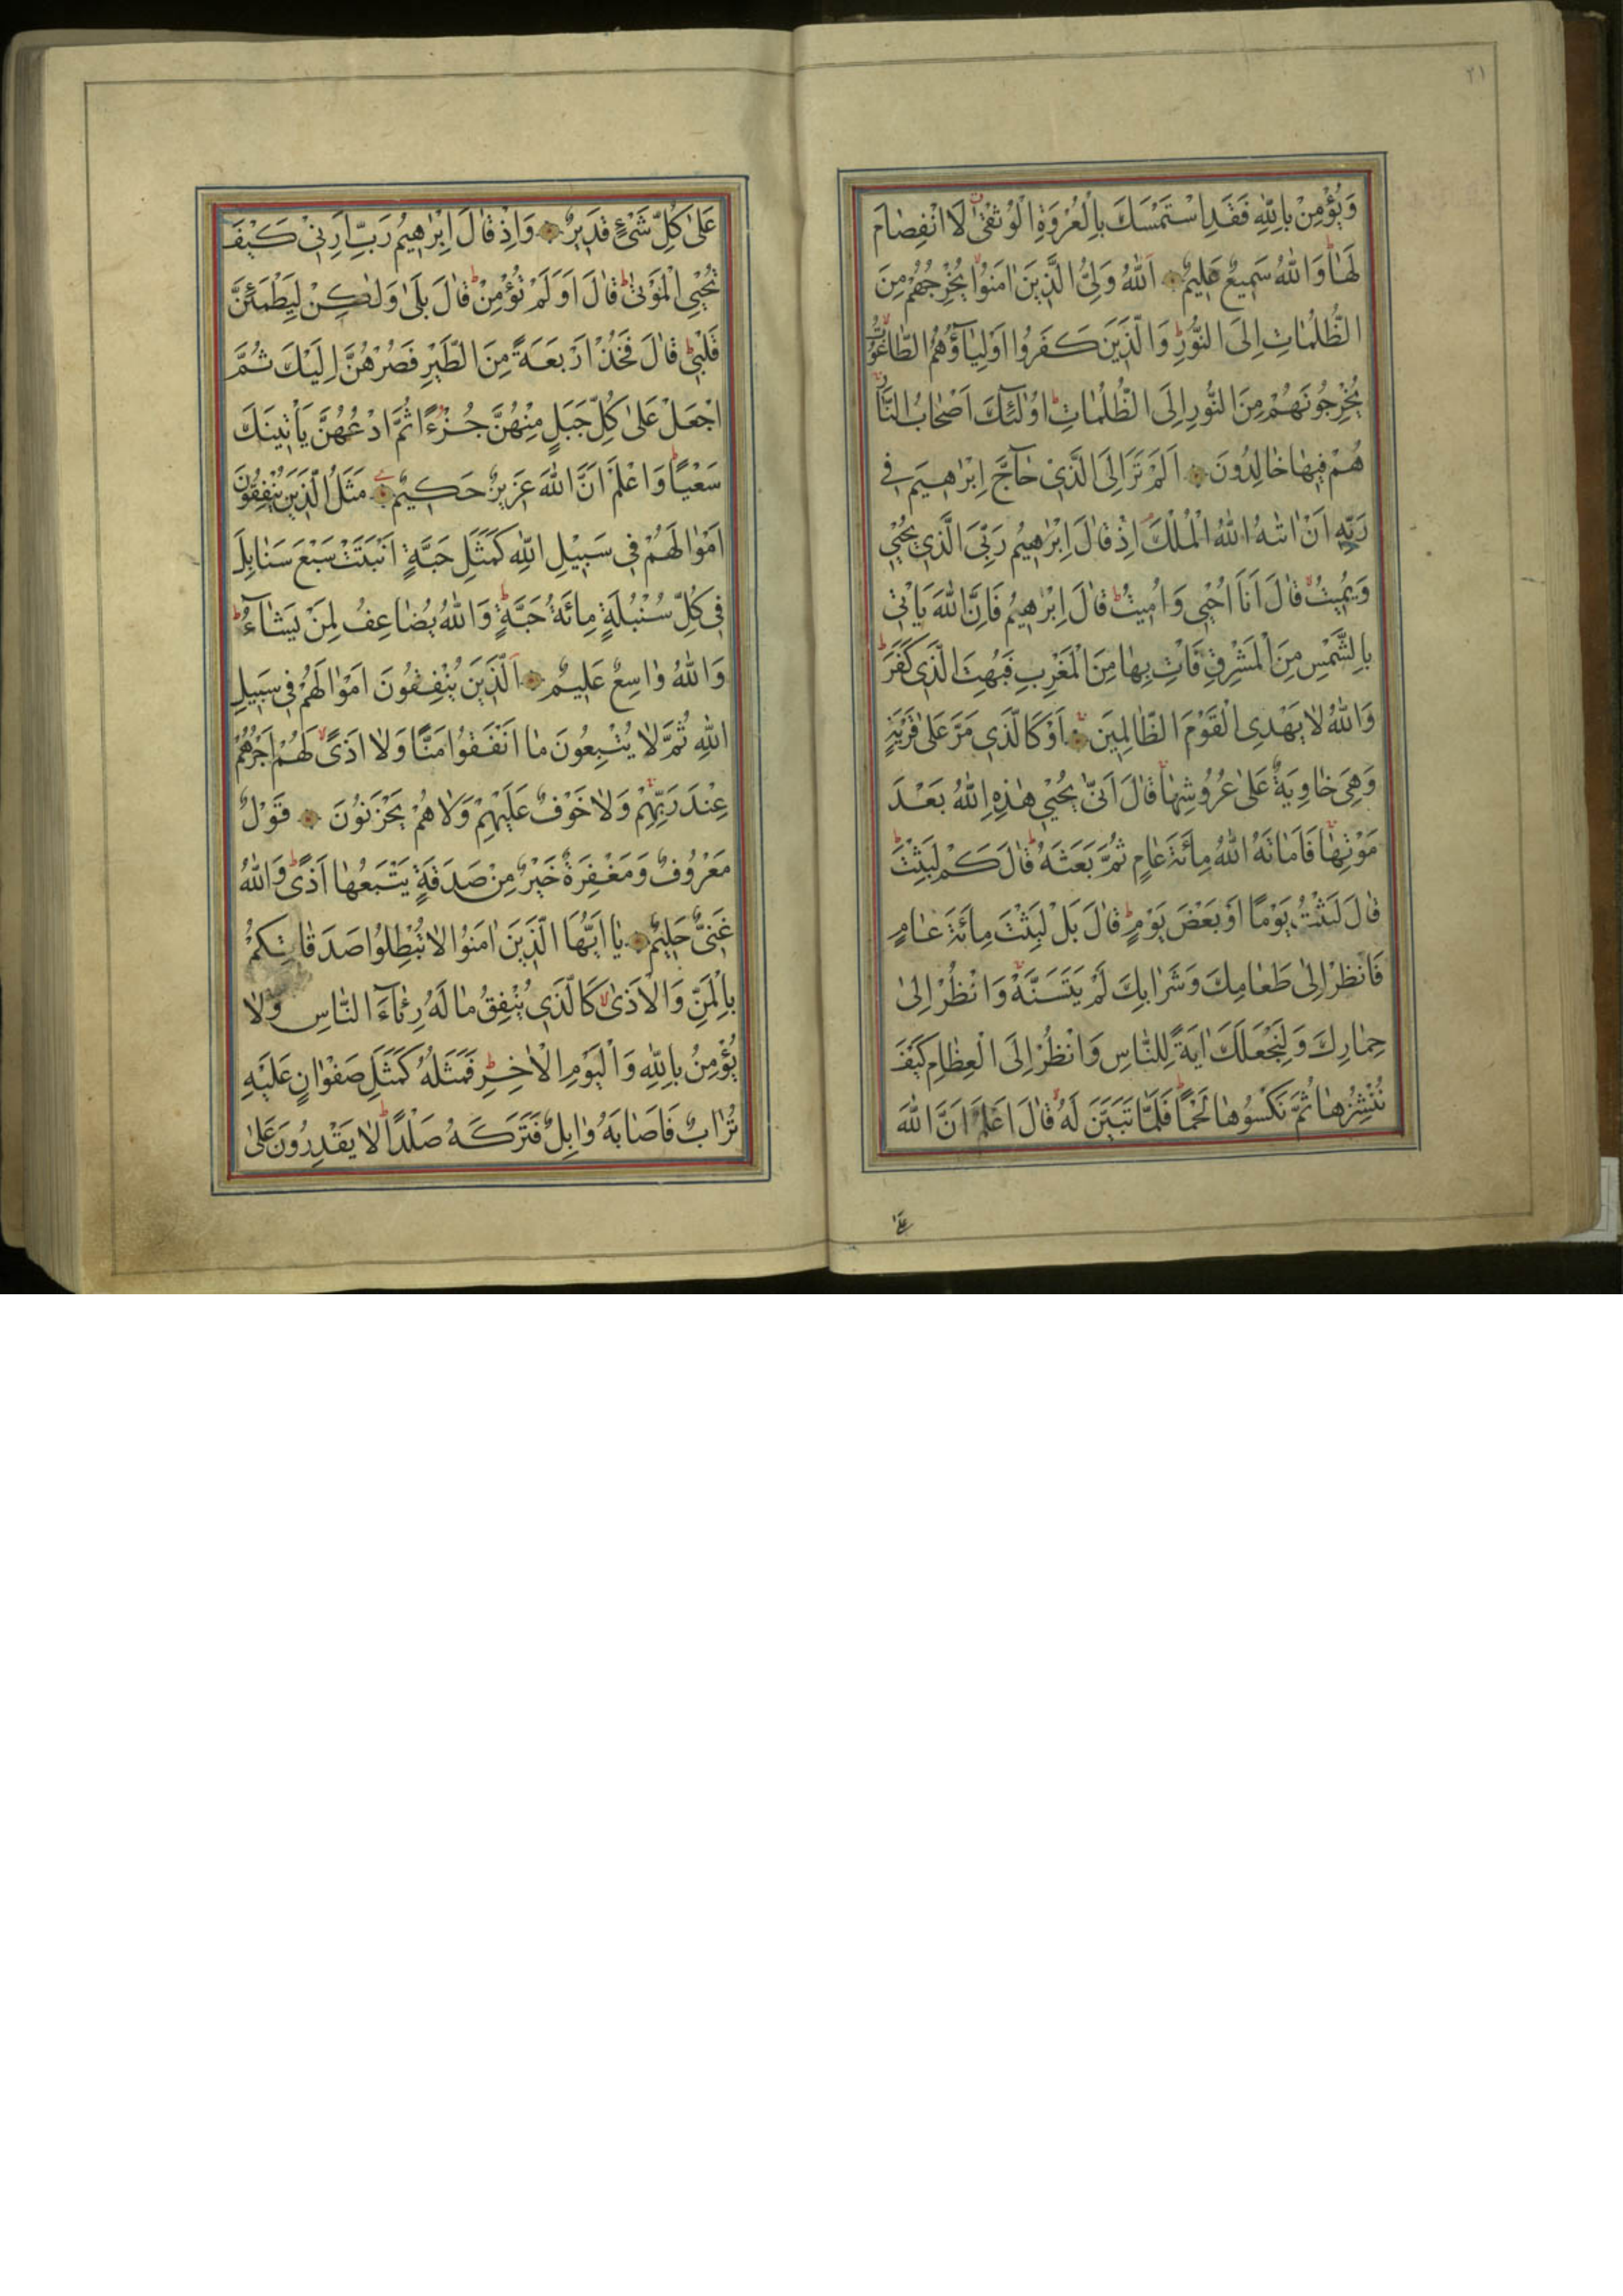 ٢١
وَيُؤْمِنْ بِاللّٰهِ فَقَدِ اسْتَمْسَكَ بِالْعُرْوَةِ الْوُثْقٰى لَا انْفِصٰامَ
لَهٰا وَاللّٰهُ سَمِيعٌ عَلِيمٌ اَللّٰهُ وَلِيُّ الَّذِينَ اٰمَنُوا يُخْرِجُهُمْ مِنَ
الظُّلُمٰاتِ اِلَى النُّورِ وَالَّذِينَ كَفَرُوا اَوْلِيٰاۤؤُهُمُ الطّٰاغُوتُ
يُخْرِجُونَهُمْ مِنَ النُّورِ اِلَى الظُّلُمٰاتِ اُولٰئِكَ اَصْحٰابُ النّٰارِ
هُمْ فِيهٰا خٰالِدُونَ اَلَمْ تَرَ اِلَى الَّذِي حٰاۤجَّ اِبْرٰاهِيمَ فِي
رَبِّهِ اَنْ اٰتٰيهُ اللّٰهُ الْمُلْكَ اِذْ قٰالَ اِبْرٰاهِيمُ رَبِّيَ الَّذِي يُحْيِي
وَيُمِيتُ قٰالَ اَنَا اُحْيِي وَاُمِيتُ قٰالَ اِبْرٰاهِيمُ فَاِنَّ اللّٰهَ يَأْتِي
بِالشَّمْسِ مِنَ الْمَشْرِقِ فَأْتِ بِهٰا مِنَ الْمَغْرِبِ فَبُهِتَ الَّذِي كَفَرَ
وَاللّٰهُ لٰا يَهْدِي الْقَوْمَ الظّٰالِمِينَ اَوْ كَالَّذِي مَرَّ عَلٰى قَرْيَةٍ
وَهِيَ خٰاوِيَةٌ عَلٰى عُرُوشِهٰا قٰالَ اَنّٰى يُحْيِي هٰذِهِ اللّٰهُ بَعْدَ
مَوْتِهٰا فَاَمٰاتَهُ اللّٰهُ مِائَةَ عٰامٍ ثُمَّ بَعَثَهُ قٰالَ كَمْ لَبِثْتَ
قٰالَ لَبِثْتُ يَوْمًا اَوْ بَعْضَ يَوْمٍ قٰالَ بَلْ لَبِثْتَ مِائَةَ عٰامٍ
فَانْظُرْ اِلٰى طَعٰامِكَ وَشَرٰابِكَ لَمْ يَتَسَنَّهْ وَانْظُرْ اِلٰى
حِمٰارِكَ وَلِنَجْعَلَكَ اٰيَةً لِلنّٰاسِ وَانْظُرْ اِلَى الْعِظٰامِ كَيْفَ
نُنْشِزُهٰا ثُمَّ نَكْسُوهٰا لَحْمًا فَلَمّٰا تَبَيَّنَ لَهُ قٰالَ اَعْلَمُ اَنَّ اللّٰهَ
عَلٰى
عَلٰى كُلِّ شَيْءٍ قَدِيرٌ وَاِذْ قٰالَ اِبْرٰاهِيمُ رَبِّ اَرِنِي كَيْفَ
تُحْيِي الْمَوْتٰى قٰالَ اَوَلَمْ تُؤْمِنْ قٰالَ بَلٰى وَلٰكِنْ لِيَطْمَئِنَّ
قَلْبِي قٰالَ فَخُذْ اَرْبَعَةً مِنَ الطَّيْرِ فَصُرْهُنَّ اِلَيْكَ ثُمَّ
اجْعَلْ عَلٰى كُلِّ جَبَلٍ مِنْهُنَّ جُزْءًا ثُمَّ ادْعُهُنَّ يَأْتِينَكَ
سَعْيًا وَاعْلَمْ اَنَّ اللّٰهَ عَزِيزٌ حَكِيمٌ مَثَلُ الَّذِينَ يُنْفِقُونَ
اَمْوٰالَهُمْ فِي سَبِيلِ اللّٰهِ كَمَثَلِ حَبَّةٍ اَنْبَتَتْ سَبْعَ سَنٰابِلَ
فِي كُلِّ سُنْبُلَةٍ مِائَةُ حَبَّةٍ وَاللّٰهُ يُضٰاعِفُ لِمَنْ يَشٰاۤءُ
وَاللّٰهُ وٰاسِعٌ عَلِيمٌ اَلَّذِينَ يُنْفِقُونَ اَمْوٰالَهُمْ فِي سَبِيلِ
اللّٰهِ ثُمَّ لٰا يُتْبِعُونَ مٰا اَنْفَقُوا مَنًّا وَلٰا اَذًى لَهُمْ اَجْرُهُمْ
عِنْدَ رَبِّهِمْ وَلٰا خَوْفٌ عَلَيْهِمْ وَلٰا هُمْ يَحْزَنُونَ قَوْلٌ
مَعْرُوفٌ وَمَغْفِرَةٌ خَيْرٌ مِنْ صَدَقَةٍ يَتْبَعُهٰا اَذًى وَاللّٰهُ
غَنِيٌّ حَلِيمٌ يٰا اَيُّهَا الَّذِينَ اٰمَنُوا لٰا تُبْطِلُوا صَدَقٰاتِكُمْ
بِالْمَنِّ وَالْاَذٰى كَالَّذِي يُنْفِقُ مٰالَهُ رِئٰاۤءَ النّٰاسِ وَلٰا
يُؤْمِنُ بِاللّٰهِ وَالْيَوْمِ الْاٰخِرِ فَمَثَلُهُ كَمَثَلِ صَفْوٰانٍ عَلَيْهِ
تُرٰابٌ فَاَصٰابَهُ وٰابِلٌ فَتَرَكَهُ صَلْدًا لٰا يَقْدِرُونَ عَلٰى